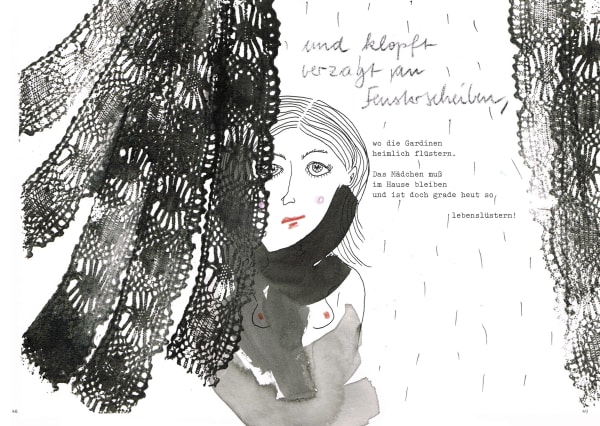 und klopft
verzagt an
Fensterscheiben,
wo die Gardinen
heimlich flüstern.
Das Mädchen muß
im Hause bleiben
und ist doch grade heut so
lebenslüstern!
46
47